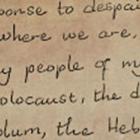 ponse to despai
where we are,
y people of my
olocaust, the d
olum, the He